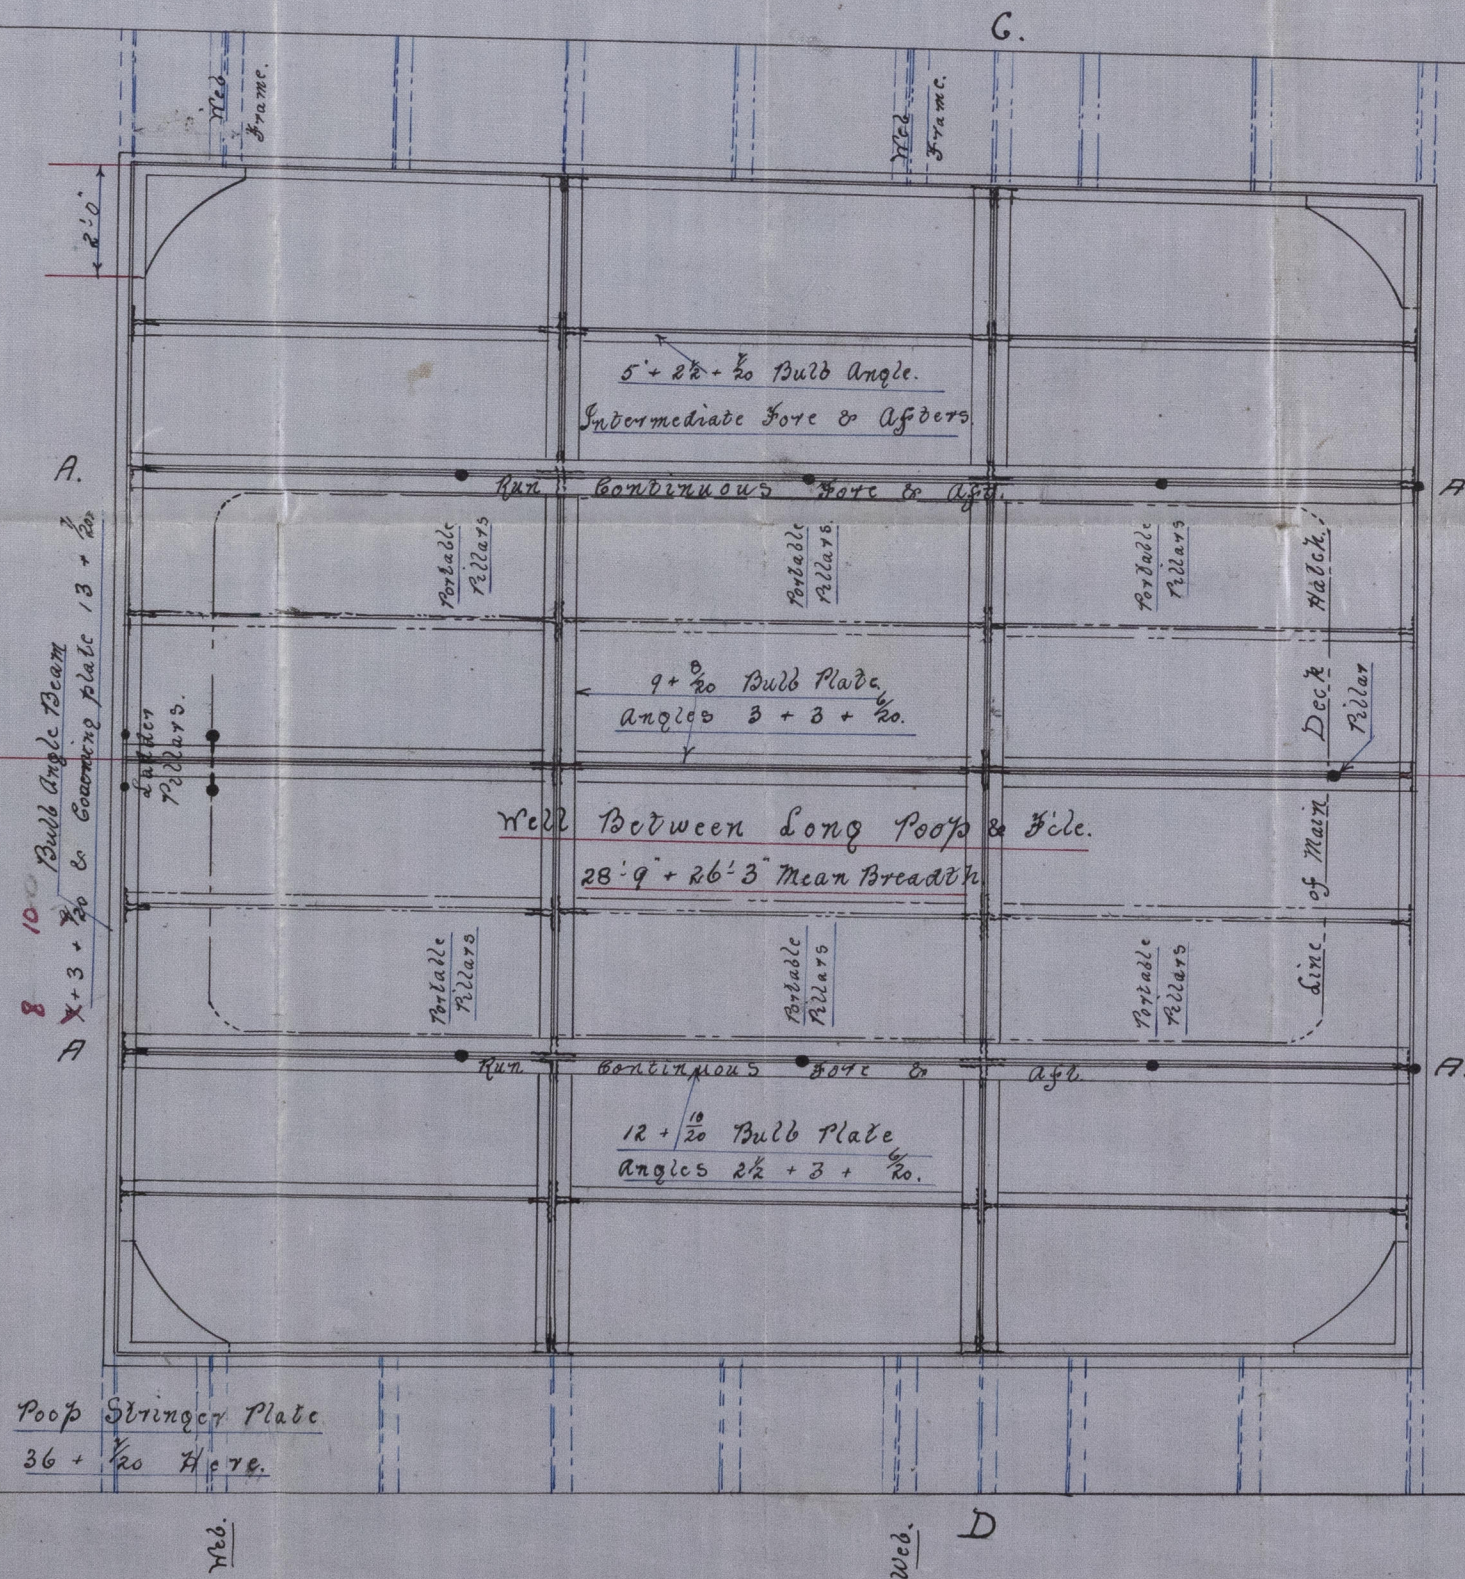 C.
Web
Frame.
Web
Frame.
2'-0"
5" + 2½ + 7/20 Bulb Angle.
Intermediate Fore & Afters
A.
Run Continuous Fore & Aft.
A
Portable
Pillars
Portable
Pillars.
Portable
Pillars
Line of Main Deck Hatch.
Pillar
9 + 8/20 Bulb Plate.
Angles 3 + 3 + 6/20.
Ladder
Pillars.
Bulb Angle Beam
+ 3 + & Coaming plate 13 + 7/20
8 10
Well Between Long Poop & F'cle.
28'-9" + 26'-3" Mean Breadth
Portable
Pillars
Portable
Pillars
Portable
Pillars
A
Run Continuous Fore & Aft.
A.
12 + 10/20 Bulb Plate
Angles 2½ + 3 + 6/20.
Poop Stringer Plate
36 + 7/20 Here.
Web.
Web.
D